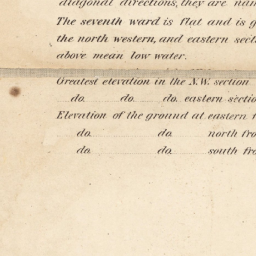 diagonal directions, they are nam
The seventh ward is flat and is g
the north western, and eastern secti
above mean low water.
Greatest elevation in the N.W. section
do. do. do. eastern sectio
Elevation of the ground at eastern
do. do. north fro
do. do. south fro